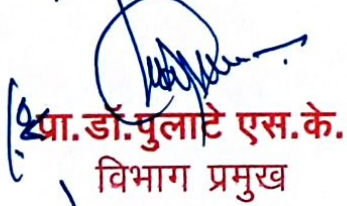 प्रा.डॉ.पुलाटे एस.के.
विभाग प्रमुख